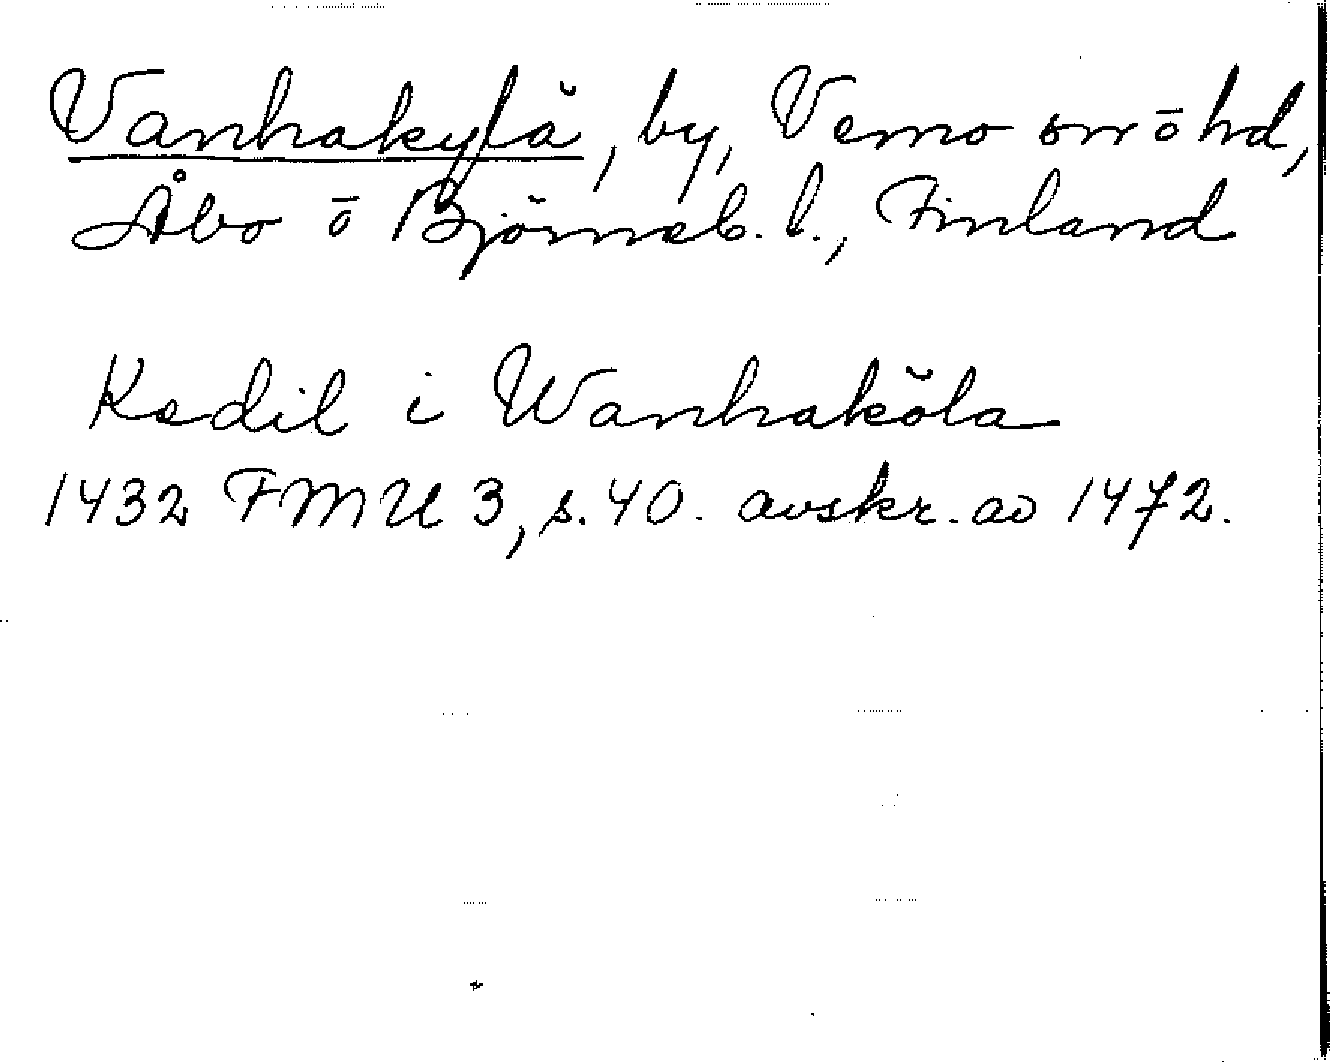 Vanhakylä, by, Vemo sn ō hd,
Åbo ō Björneb. l., Finland
Kedil i Wanhakŏla
1432 FMU 3, s. 40. avskr. av 1472.